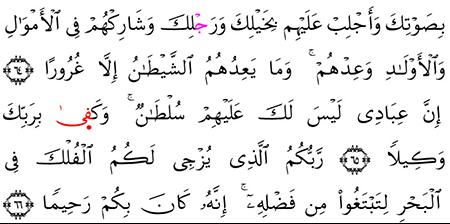 بِصَوْتِكَ وَأَجْلِبْ عَلَيْهِم بِخَيْلِكَ وَرَجْلِكَ وَشَارِكْهُمْ فِى الْأَمْوَٰلِ
وَالْأَوْلَـٰدِ وَعِدْهُمْ ۚ وَمَا يَعِدُهُمُ الشَّيْطَـٰنُ إِلَّا غُرُورًا ٦٤
إِنَّ عِبَادِى لَيْسَ لَكَ عَلَيْهِمْ سُلْطَـٰنٌ ۚ وَكَفىٰ بِرَبِّكَ
وَكِيلًا ٦٥ رَّبُّكُمُ الَّذِى يُزْجِى لَكُمُ الْفُلْكَ فِى
الْبَحْرِ لِتَبْتَغُوا۟ مِن فَضْلِهِۦٓ ۚ إِنَّهُۥ كَانَ بِكُمْ رَحِيمًا ٦٦